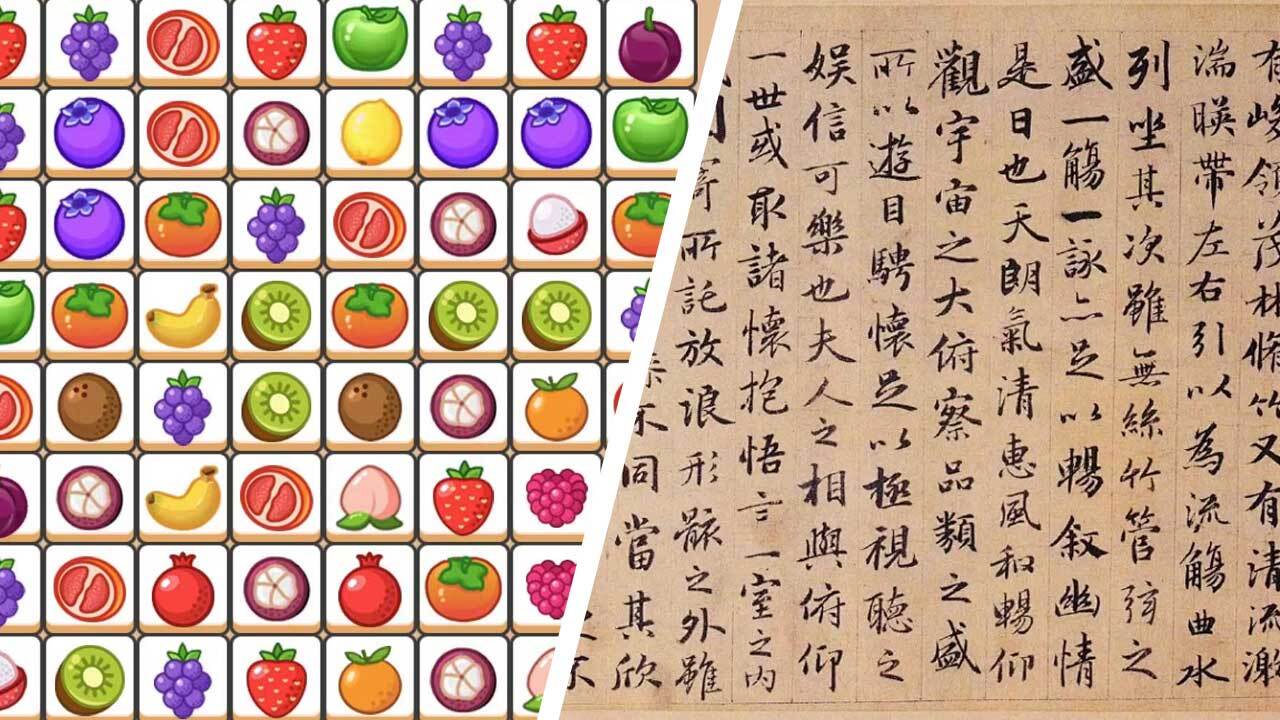 有峻領茂林脩竹又有清流激
湍暎帶左右引以為流觴曲水
列坐其次雖無絲竹管弦之
盛一觴一詠亦足以暢敘幽情
是日也天朗氣清惠風和暢仰
觀宇宙之大俯察品類之盛
所以遊目騁懷足以極視聽之
娛信可樂也夫人之相與俯仰
一世或取諸懷抱悟言一室之內
因寄所託放浪形骸之外雖
不同當其欣
不